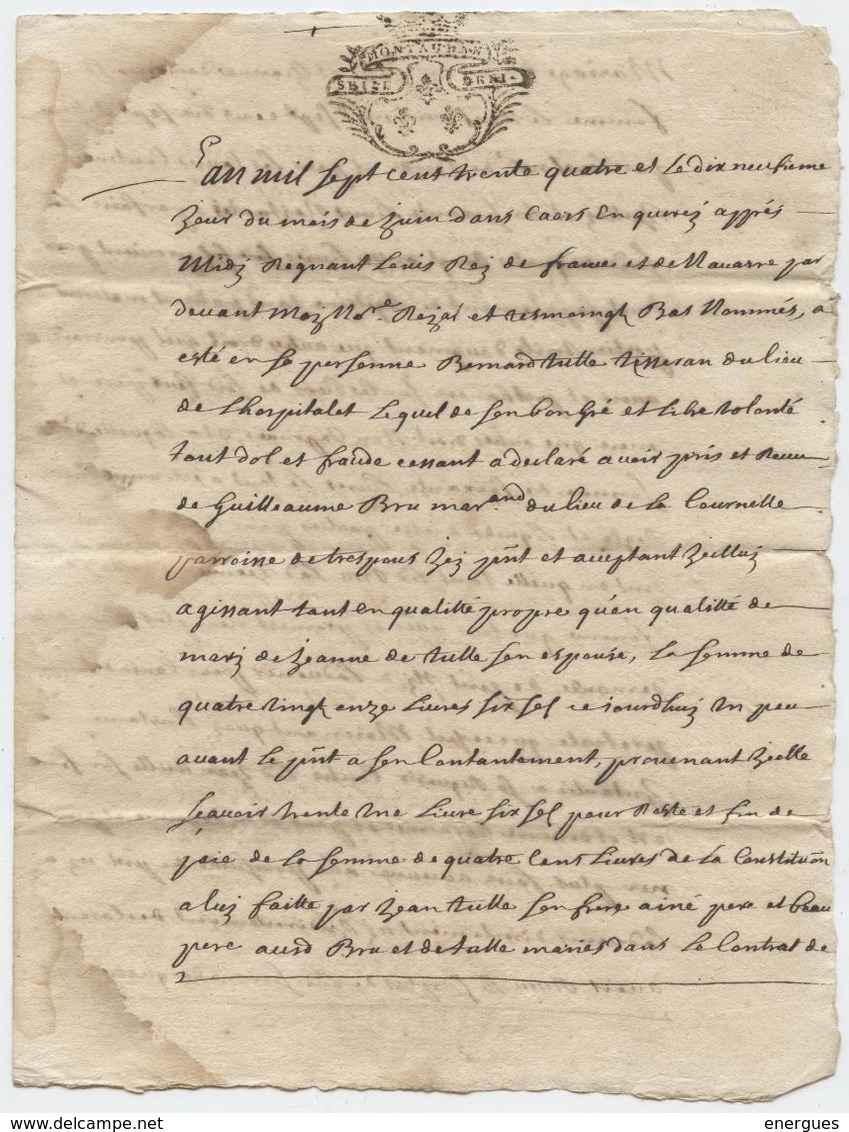 MONTAUBAN
SEIZE DENI.
L'an mil sept cent trente quatre et le dix neufieme
Jour du mois de Juin dans Caors en querci apprés
Midj Regnant Louis Roj de france et de Nauarre par
deuant Moy No.re Rojal et tesmoingts Bas Nommés, a
esté en sa personne Bernard tulle tisseran du lieu
de Lhospitalet Lequel de son bon gré et Libre volonté
tout dol et fraude cessant a declaré auoir pris et Receu
de Guilleaume Bru mar.and du lieu de La Tournelle
parroisse de trespous Jcj pñt et aceptant Jcelluj
agissant tant en qualitté propre qu'en qualitté de
marj de Jeanne de tulle son espouse, La somme de
quatre vingt onze Liures six sol ce jourdhuij vn peu
auant le pñt a son Contantement, prouenant Jcelle
Scauoir trente vne Liure six sol pour Reste et fin de
paie de La somme de quatre Cens Liures de La Constituõn
a luj faitte par Jean tulle son frere ainé pere et beau
pere ausd Bru et de tulle mariés dans Le Contrat de
www.delcampe.net
energues